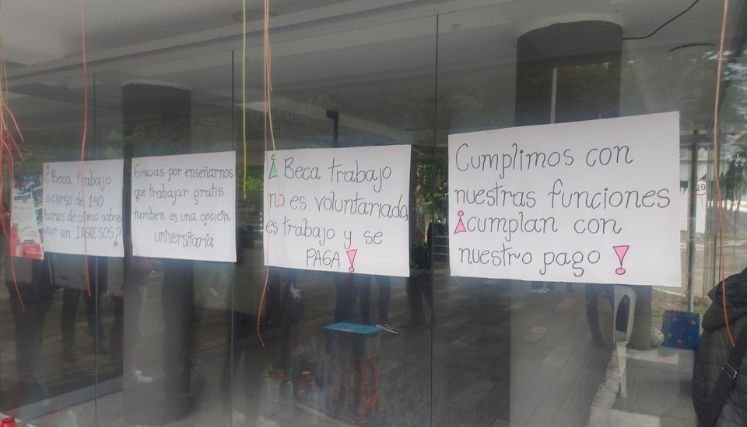 ¿Beca trabajo
o curso de 140
horas de cómo sobre
vivir sin INGRESOS?
Gracias por enseñarnos
que trabajar gratis
tambien es una opción
universitaria
¡Beca trabajo
no es voluntariado,
es trabajo y se
PAGA!
Cumplimos con
nuestras funciones
¡cumplan con
nuestro pago!